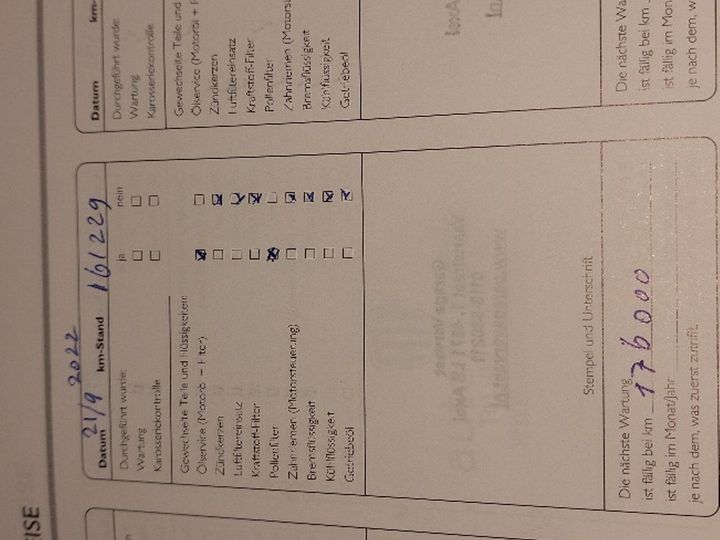 ISE
21/9 2022
Datum km-Stand 161229
Durchgeführt wurde: ja nein
Wartung
Karosseriekontrolle
Gewechselte Teile und Flüssigkeiten:
Ölservice (Motoröl + Filter)
Zündkerzen
Luftfiltereinsatz
Kraftstoff-Filter
Pollenfilter
Zahnriemen (Motorsteuerung)
Bremsflüssigkeit
Kühlflüssigkeit
Getriebeöl
Stempel und Unterschrift
Die nächste Wartung
ist fällig bei km 176000
ist fällig im Monat/Jahr
je nach dem, was zuerst zutrifft.
Datum km-
Durchgeführt wurde:
Wartung
Karosseriekontrolle
Gewechselte Teile und
Ölservice (Motoröl + F
Zündkerzen
Luftfiltereinsatz
Kraftstoff-Filter
Pollenfilter
Zahnriemen (Motorst
Bremsflüssigkeit
Kühlflüssigkeit
Getriebeöl
Die nächste Wa
ist fällig bei km
ist fällig im Mon
je nach dem, w